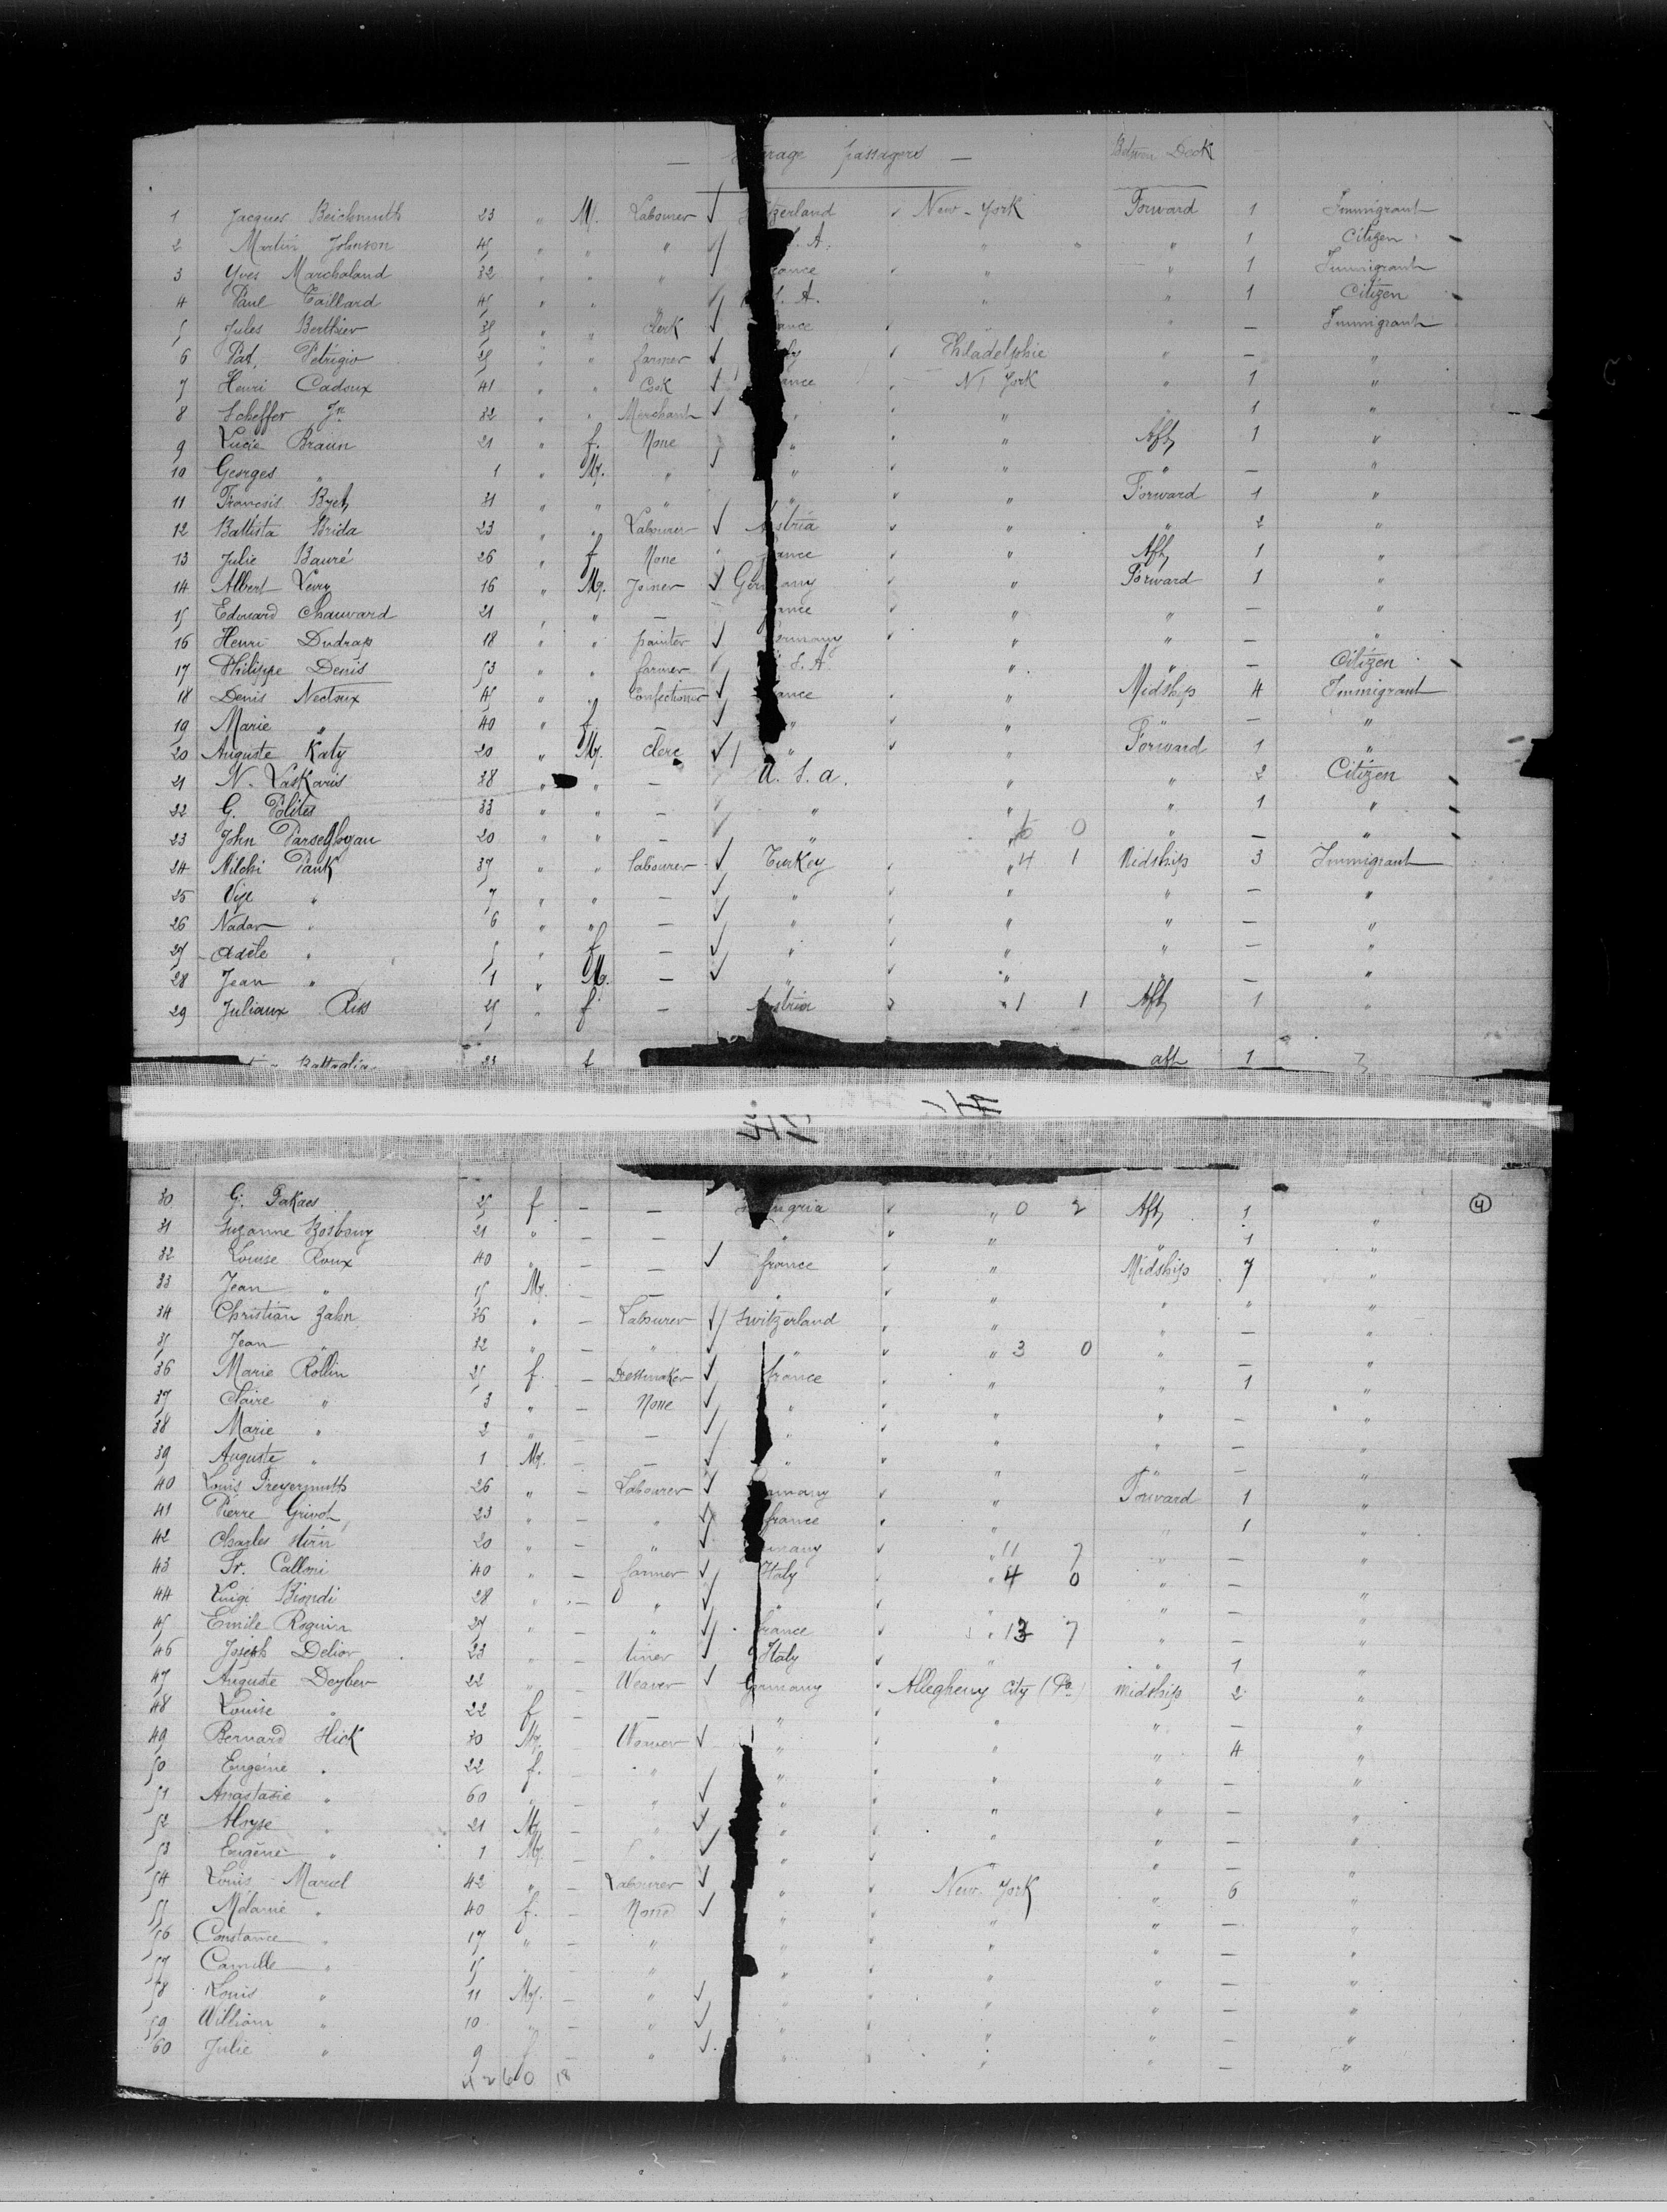 — passagers — Between Deck
1 Jacques Beichmuth 23 " M. Labourer ✓ ✓ New-York Forward 1 Immigrant
2 Martin Johnson 45 " " " ✓ S. A. " " " 1 Citizen
3 Yves Marchaland 32 " " " ✓ ✓ " " 1 Immigrant
4 Paul Taillard 45 " " " ✓ S. A. " " 1 Citizen
5 Jules Berthier 35 " " Clerk ✓ ✓ " — Immigrant
6 Pat. Petrigio 25 " " farmer ✓ ✓ Philadelphie " — "
7 Henri Cadoux 41 " " Cook ✓ N York " 1 "
8 Scheffer Jn 32 " " Merchant ✓ " " " 1 "
9 Lucie Braun 21 " f. None " " Aft 1 "
10 Georges " 1 " M. " ✓ " ✓ " " — "
11 Francois 31 " " " " ✓ " Forward 1 "
12 Battista Brida 23 " " Labourer ✓ ✓ " " 2 "
13 Julie Bauré 26 " f None ✓ " Aft 1 "
14 Albert Levy 16 " M. Joiner ✓ Germany ✓ " Forward 1 "
15 Edouard Chauvard 21 " " — " " — "
16 Henri Dudrap 18 " " painter ✓ ✓ " " — "
17 Philippe Denis 53 " " farmer ✓ S. A. " " — Citizen
18 Denis Nectoux 45 " " Confectioner ✓ " Midship 4 Immigrant
19 Marie " 40 " f — ✓ " ✓ " " — "
20 Auguste Katy 20 " M. Clerc ✓ " ✓ " Forward 1 "
21 N. Laskaris 38 " " — U. S. a. " " 2 Citizen
22 G. Polites 33 " " — " " " 1 "
23 John 20 " " — " " 0 " — "
24 Pank 37 " " labourer ✓ Turkey " 4 1 Midship 3 Immigrant
25 " 7 " " — ✓ " ✓ " " — "
26 Nadar " 6 " " — ✓ " ✓ " " — "
27 Adèle " 5 " f — ✓ " ✓ " " — "
28 Jean " 1 " M. — ✓ " ✓ " " — "
29 Juliaux Riss 25 " f — " 1 1 Aft 1 "
Battaglia 23 f aft 1
30 G. Takacs 25 f — — ✓ " 0 2 Aft 1 " 4
31 Suzanne 21 " — — " ✓ " " 1 "
32 Louise Roux 40 " — — ✓ france ✓ " Midship 7 "
33 Jean " 15 M. — — " ✓ " " " "
34 Christian Zahn 36 " — Labourer ✓ Switzerland " " — "
35 Jean " 32 " — " ✓ " " 3 0 " — "
36 Marie Rollin 25 f. — Dressmaker ✓ france " " 1 "
37 Claire " 3 " — None ✓ " " " — "
38 Marie " 2 " — — ✓ " " " — "
39 Auguste " 1 M. — — ✓ " ✓ " " — "
40 Louis Freyermuth 26 " — Labourer ✓ ✓ " Forward 1 "
41 Pierre Grivot 23 " — " ✓ france " " 1 "
42 Charles Hirn 20 " — " ✓ ✓ " 11 7 " — "
43 Fr. Calloni 40 " — farmer ✓ Italy " 4 0 " — "
44 Luigi Biondi 28 " — " ✓ " ✓ " " — "
45 Emile Roguin 27 " — " ✓ france ✓ " 13 7 " — "
46 Joseph Delior 23 " — ✓ Italy ✓ " " 1 "
47 Auguste Deyber 22 " — Weaver ✓ Germany ✓ Allegheny City (Pa) midship 2 "
48 Louise " 22 f — — " ✓ " " — "
49 Bernard Hick 30 M. — Weaver ✓ " ✓ " " 4 "
50 Eugénie " 22 f. — " " " " — "
51 Anastasie " 60 " — " ✓ " " " — "
52 Aloyse " 21 M. — " ✓ " " " — "
53 Eugène " 1 M. — " ✓ " ✓ " " — "
54 Louis Marcel 42 " — Labourer ✓ " ✓ New York " 6 "
55 Mélanie " 40 f. — None ✓ " " " — "
56 Constance " 17 " — " " " " — "
57 Camille " 15 " — " " " " — "
58 Louis " 11 M. — " ✓ " " " — "
59 William " 10 " — " ✓ " " " — "
60 Julie " 9 f — " ✓ " " " — "